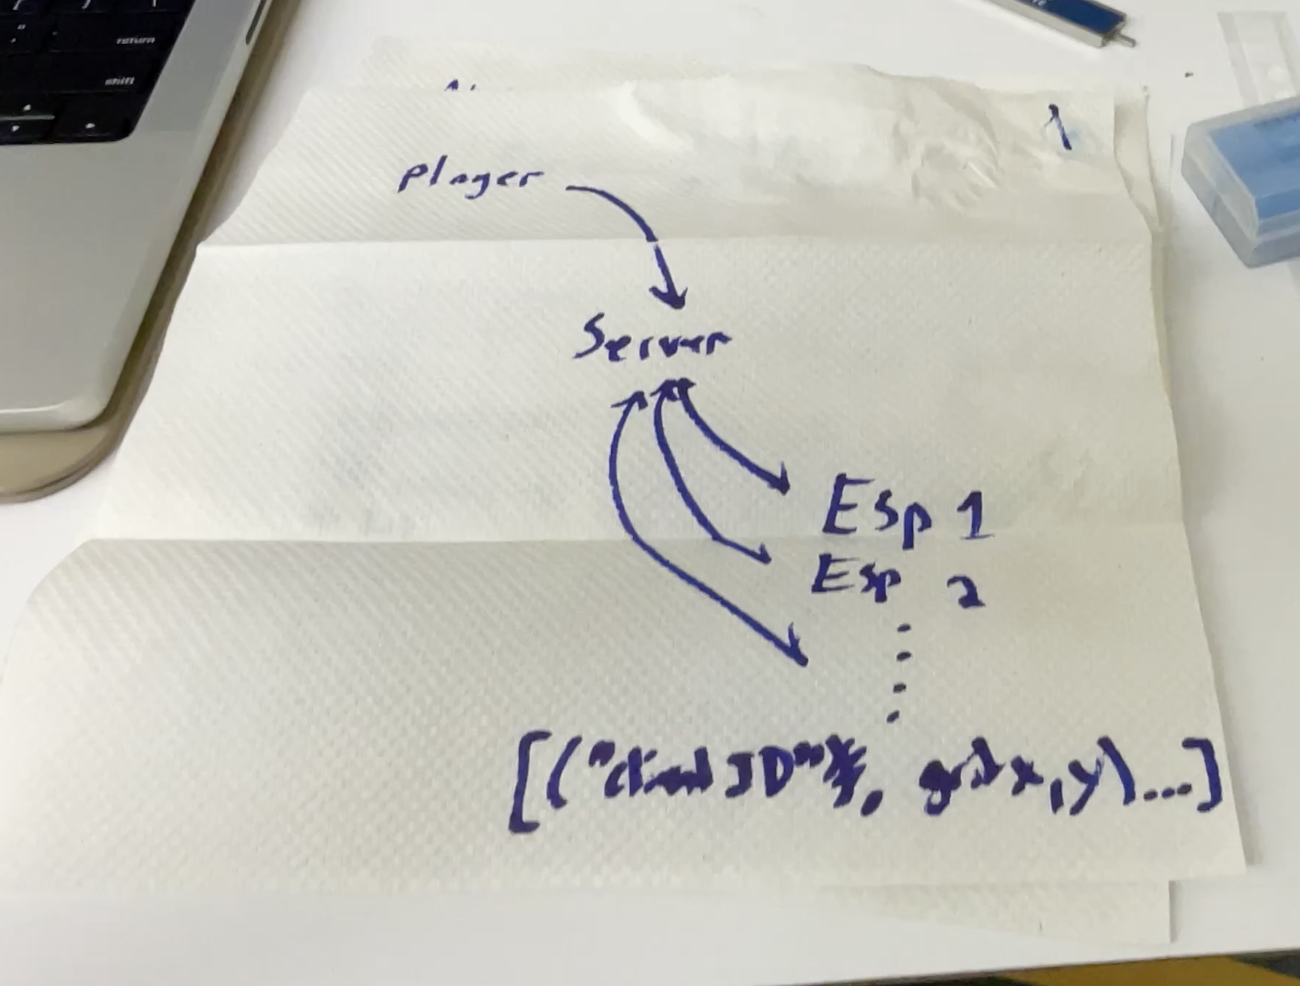 return
shift
1
player
Server
Esp 1
Esp 2
[("client ID", grid x,y)...]